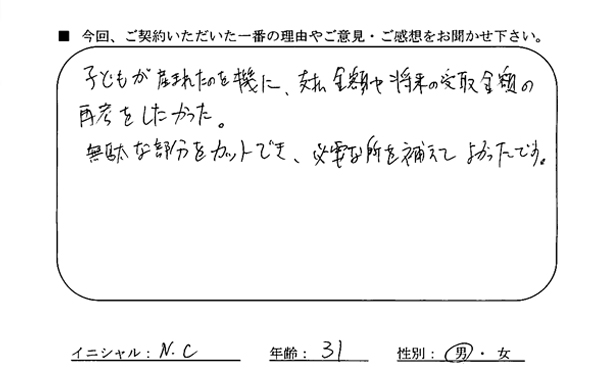 ■ 今回、ご契約いただいた一番の理由やご意見・ご感想をお聞かせ下さい。
子どもが産まれたのを機に、支払金額や将来の受取金額の
再考をしたかった。
無駄な部分をカットでき、必要な所を補えてよかったです。
イニシャル：N.C 年齢：31 性別：男・女